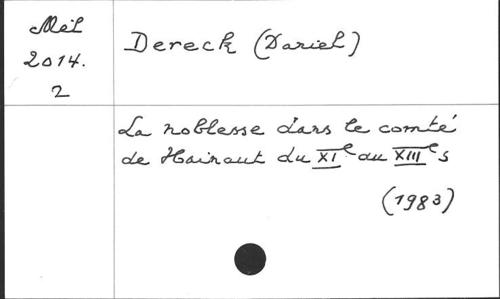 Mél
2014.
2
Dereck (Daniel)
La noblesse dans le comté
de Hainaut du XIe au XIIIe s
(1983)